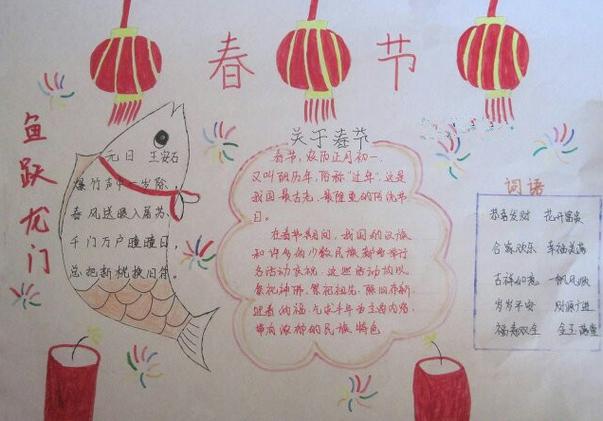 春节
鱼跃龙门
元日 王安石
爆竹声中一岁除，
春风送暖入屠苏，
千门万户曈曈日，
总把新桃换旧符。
关于春节
春节，农历正月初一，
又叫阴历年，俗称“过年”，这是
我国最古老、最隆重的传统节
日。
在春节期间，我国的汉族
和许多的少数民族都会举行
各活动庆祝，这些活动均以
祭祀神佛、祭祀祖先、除旧存新
迎春纳福、乞求丰年为主的内容，
带有浓郁的民族特色
词语
恭喜发财 花开富贵
合家欢乐 幸福美满
吉祥如意 一帆风顺
岁岁平安 财源广进
福寿双全 金玉满堂